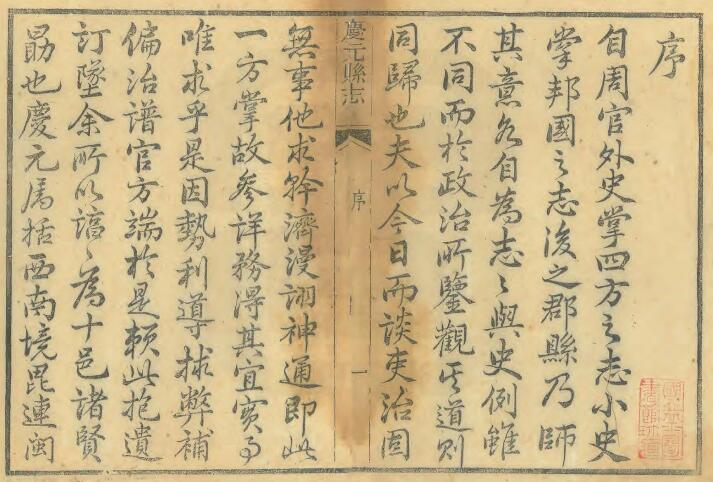 序
自周官外史掌四方之志小史
掌邦國之志後之郡縣乃師
其意各自為志〻與史例雖
不同而於政治所鑒觀其道則
同歸也夫以今日而談吏治固
慶元縣志
序
一
無事他求幹濟漫詡神通即此
一方掌故参详務得其宜實事
唯求乎是因勢利導捄弊補
偏治谱官方端於是賴此抱遺
訂墜余所以諄〻為十邑諸賢
勗也慶元属括西南境毘連閩